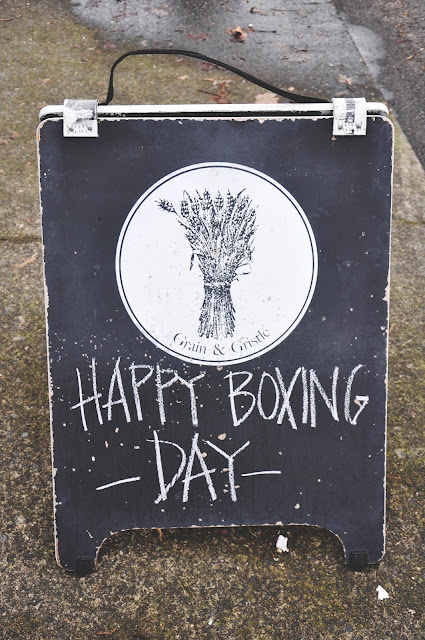 Grain & Gristle
HAPPY BOXING
- DAY -